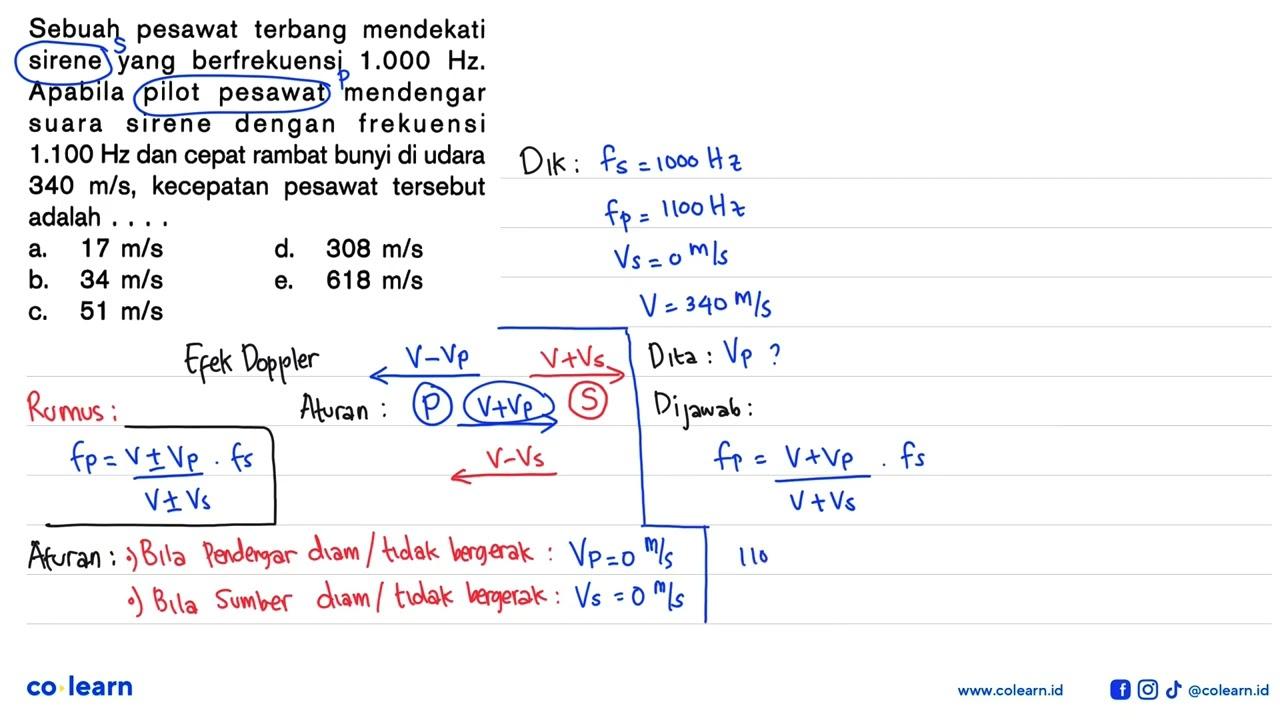 Sebuah pesawat terbang mendekati
sirene yang berfrekuensi 1.000 Hz.
Apabila pilot pesawat mendengar
suara sirene dengan frekuensi
1.100 Hz dan cepat rambat bunyi di udara
340 m/s, kecepatan pesawat tersebut
adalah . . . .
a. 17 m/s d. 308 m/s
b. 34 m/s e. 618 m/s
c. 51 m/s
S
P
Dik: fs = 1000 Hz
fp = 1100 Hz
Vs = 0 m/s
V = 340 m/s
Efek Doppler
V-Vp V+Vs
Aturan : P V+Vp S
V-Vs
Rumus:
fp = V ± Vp . fs
V ± Vs
Dita : Vp ?
Dijawab :
fp = V + Vp . fs
V + Vs
110
Aturan : •) Bila Pendengar diam / tidak bergerak : Vp = 0 m/s
•) Bila Sumber diam / tidak bergerak : Vs = 0 m/s
co learn
www.colearn.id
@colearn.id